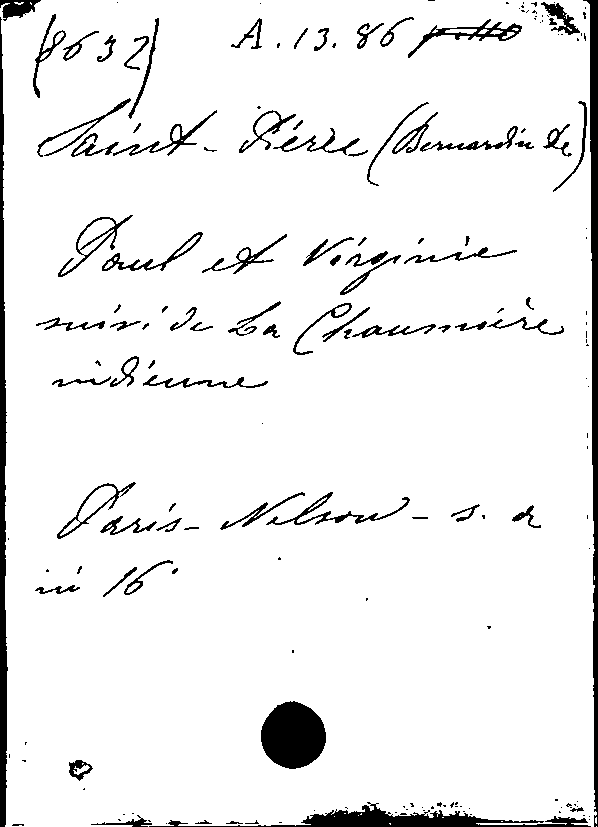 (8632) A.13.86
Saint-Pierre (Bernardin de)
Paul et Virginie
suivi de La Chaumière
indienne
Paris - Nelson - s. d
in 16°